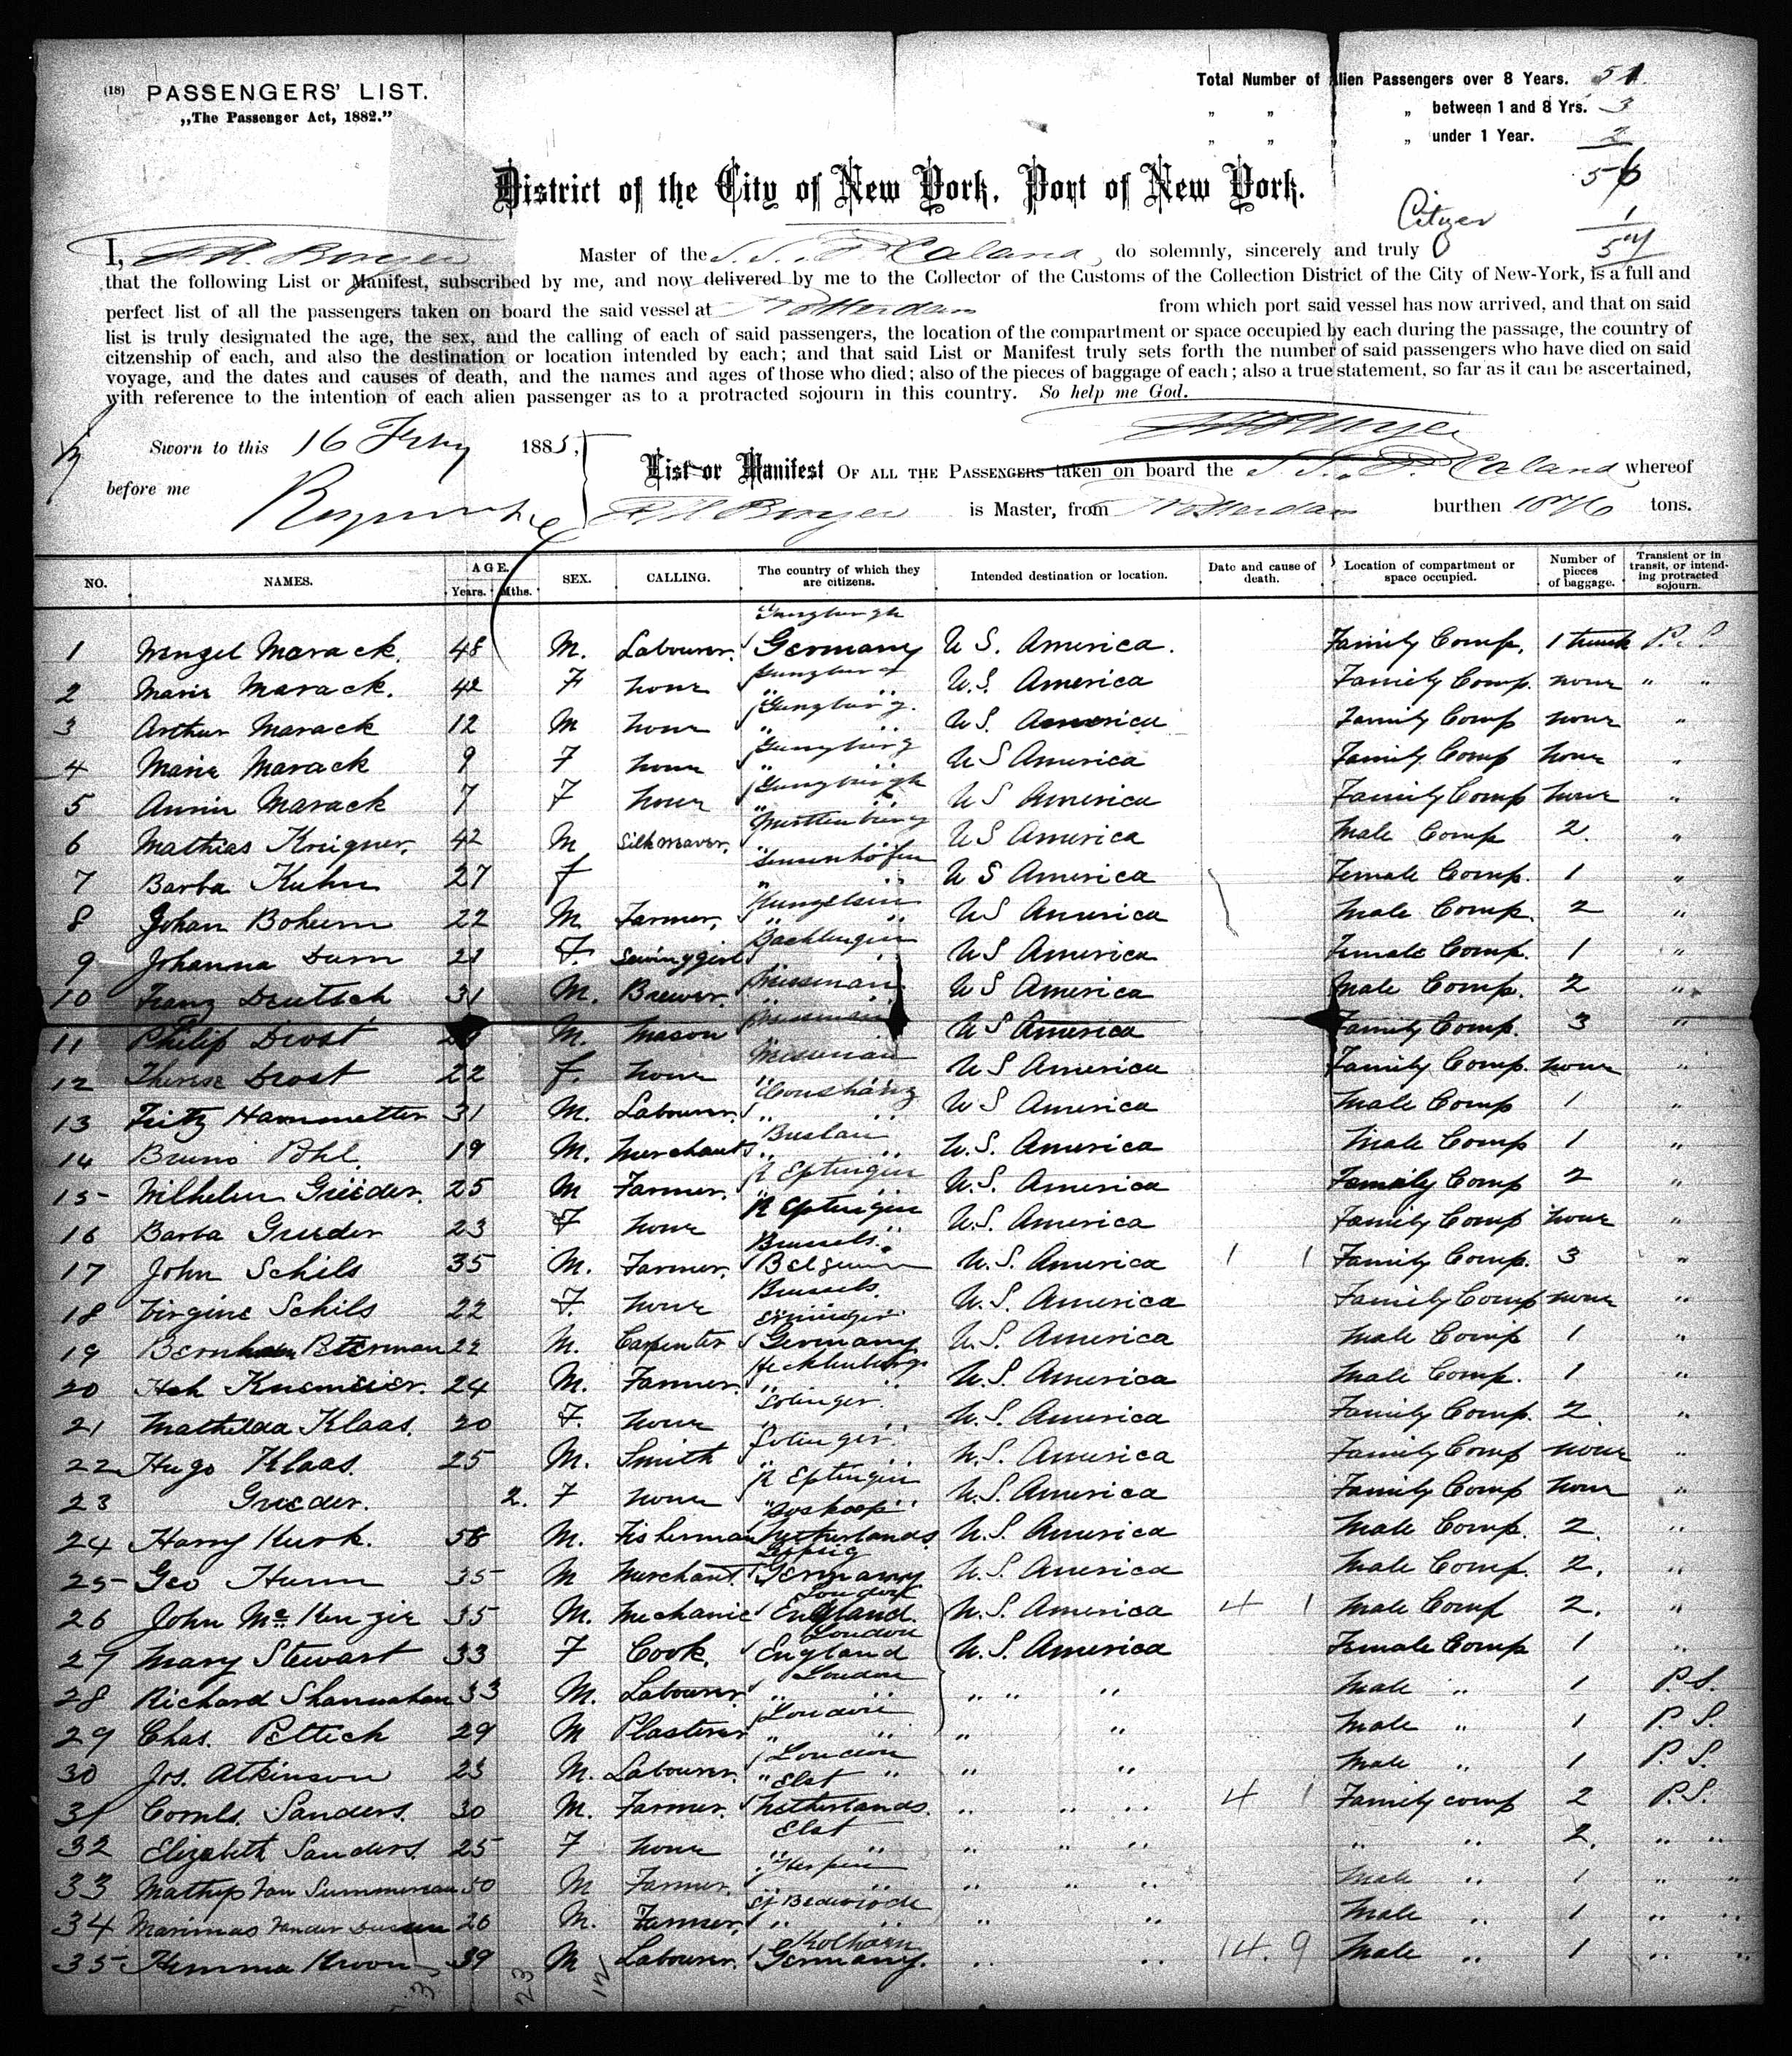 (18) PASSENGERS' LIST.
„The Passenger Act, 1882."
Total Number of Alien Passengers over 8 Years. 51
„ „ „ between 1 and 8 Yrs. 3
„ „ „ under 1 Year. 2
56
District of the City of New York, Port of New York.
Citizen 1
57
I, Master of the S.S. P. Caland, do solemnly, sincerely and truly
that the following List or Manifest, subscribed by me, and now delivered by me to the Collector of the Customs of the Collection District of the City of New-York, is a full and
perfect list of all the passengers taken on board the said vessel at Rotterdam from which port said vessel has now arrived, and that on said
list is truly designated the age, the sex, and the calling of each of said passengers, the location of the compartment or space occupied by each during the passage, the country of
citzenship of each, and also the destination or location intended by each; and that said List or Manifest truly sets forth the number of said passengers who have died on said
voyage, and the dates and causes of death, and the names and ages of those who died; also of the pieces of baggage of each; also a true statement, so far as it can be ascertained,
with reference to the intention of each alien passenger as to a protracted sojourn in this country. So help me God.
Sworn to this 16 Feby 1885,
before me
List or Manifest OF ALL THE PASSENGERS taken on board the S.S. P. Caland whereof
is Master, from Rotterdam burthen tons.
NO. NAMES. AGE. Years. Mths. SEX. CALLING. The country of which they are citizens. Intended destination or location. Date and cause of death. Location of compartment or space occupied. Number of pieces of baggage. Transient or in transit, or intending protracted sojourn.
1 Wenzel Marack. 48 M. Labourer. Germany U S. America. Family Comp. 1 trunk P. S
2 Marie Marack. 42 F none " " U.S. America Family Comp. none " "
3 Arthur Marack 12 M none " " U S. America Family Comp none "
4 Marie Marack 9 F none " " U S America Family Comp none "
5 Annie Marack 7 F none " " U S America Family Comp none "
6 Mathias 42 M Silk weaver. " " U S America Male Comp 2. "
7 Barba Kuhn 27 f " " U S America Female Comp. 1 "
8 Johan 22 M. Farmer. " " U S America Male Comp. 2 "
9 Johanna F. Sewing girl U S America Female Comp. 1 "
10 Franz Deutsch 31 M. Brewer. U S America Male Comp. 2 "
11 Philip Drost M. Mason U S America Family Comp. 3 "
12 Therese Drost 22 f. none U S America Family Comp. none "
13 Fritz Hammetter 31 M. Labourer. " " U S America Male Comp 1 "
14 Bruno Pohl. 19 M. Merchant Breslau " " U.S. America Male Comp 1 "
15 Wilhelm Grieder. 25 M Farmer. R Eptingen U.S. America Family Comp 2 "
16 Barba Grieder 23 F none R Eptingen " U.S. America Family Comp none "
17 John Schils 35 M. Farmer. Brussels. Belgium U.S. America 1 1 Family Comp. 3 "
18 Virgine Schils 22 F. none Brussels. U.S. America Family Comp none "
19 22 M. Carpenter Germany U.S. America Male Comp 1 "
20 24 M. Farmer. " " U.S. America Male Comp. 1 "
21 Mathilda Klaas. 20 F. none Solingen. " " U.S. America Family Comp. 2. "
22 Hugo Klaas. 25 M. Smith Solingen. U.S. America Family Comp none "
23 Grieder. 2. F none R Eptingen " " U.S. America Family Comp none "
24 Harry Kurk. 58 M. Fisherman Boskoop Netherlands U.S. America Male Comp. 2. "
25 Geo 35 M Merchant. Leipzig Germany U.S. America Male Comp. 2. "
26 John Mc Kenzie 35 M. Mechanic London England. U.S. America 4 1 Male Comp 2. "
27 Mary Stewart 33 F Cook. London England U.S. America Female Comp 1 "
28 Richard Shannahan 33 M. Labourer. London " " " " Male " 1 P.S.
29 Chas. Pettick 29 M Plasterer London " " " " Male " 1 P. S.
30 Jos. Atkinson 23 M. Labourer. London " " " " Male " 1 P. S.
31 Cornls. Sanders. 30 M. Farmer. Elst Netherlands. " " " 4 1 Family comp 2 P.S.
32 Elizabeth Sanders. 25 F none Elst " " " " " " 2. " "
33 Mathys Van 50 M Farmer. " " " Male " 1 " "
34 Marinus Vander 26 M. Farmer. " " " " Male " 1 " "
35 Hemma Kroon 39 M Labourer. Germany. " " 14. 9 Male " 1 " "
23 12